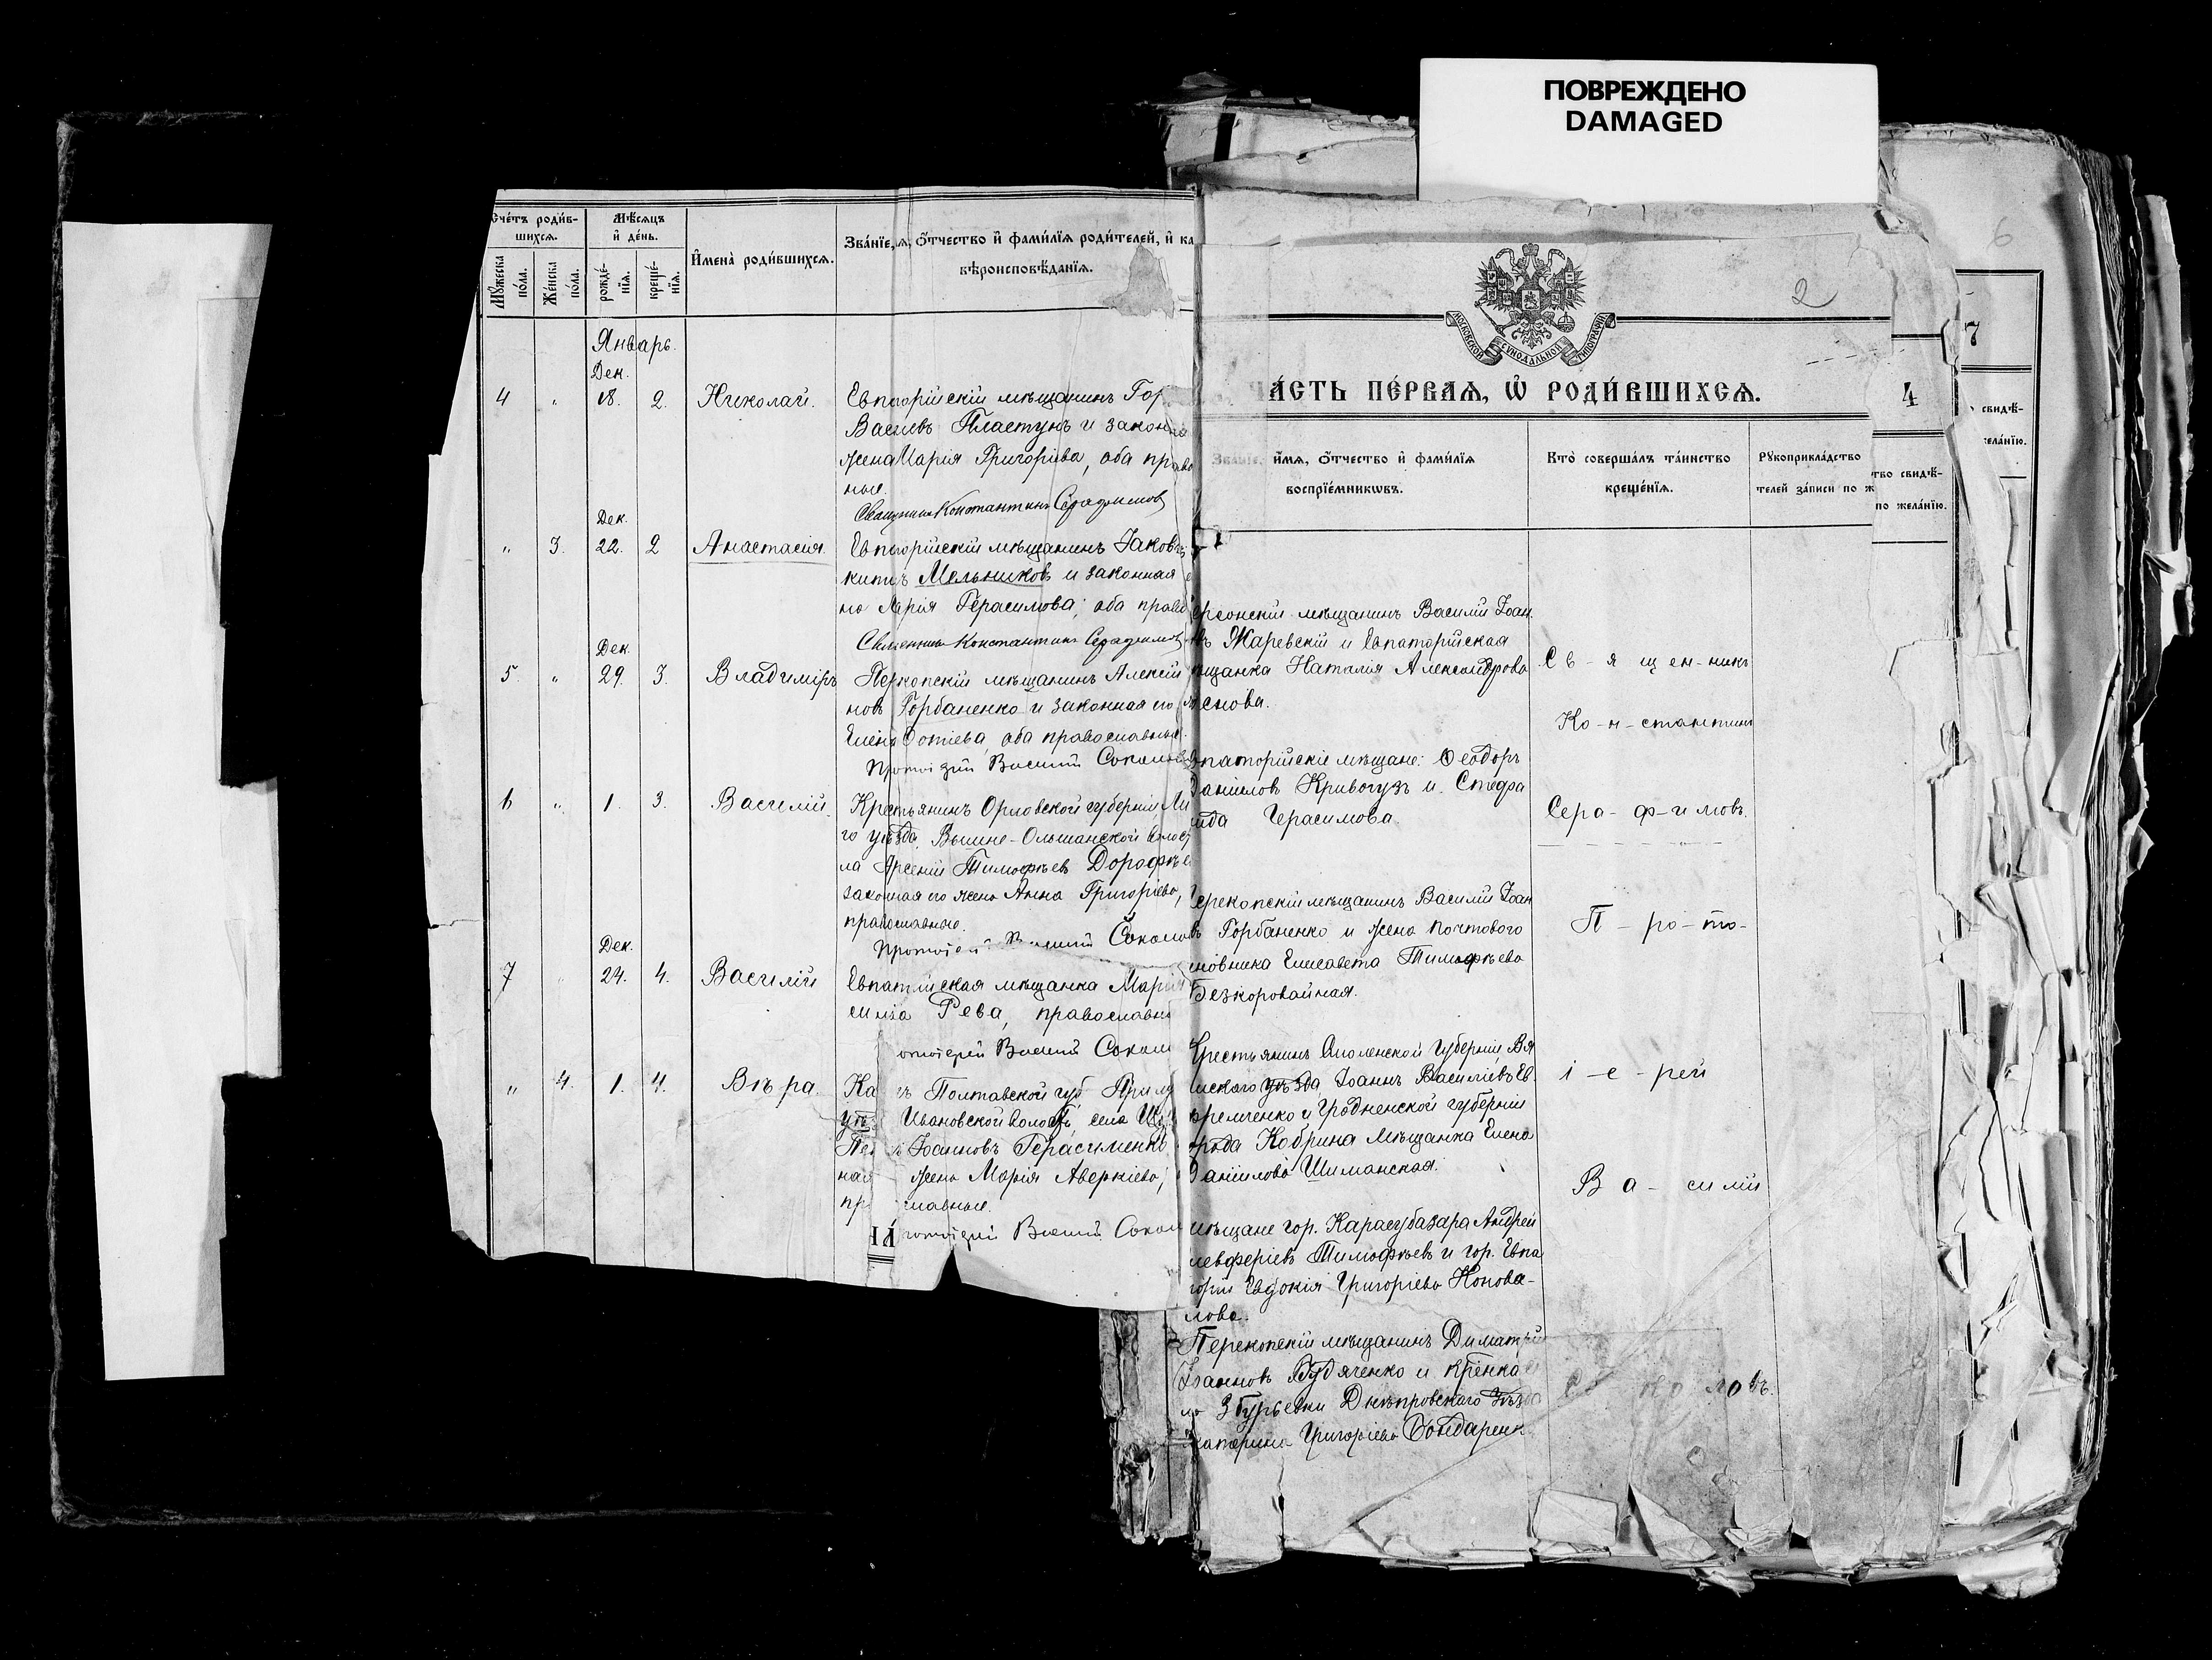 ПОВРЕЖДЕНО
DAMAGED
Счётъ роди́в-
шихсѧ.
Мꙋ́жеска по́ла.
Же́нска по́ла.
Мѣ́сѧцъ
и҆ де́нь.
рожде́-нїѧ.
креще́-нїѧ.
И҆мена̀ роди́вшихсѧ.
Зва́нїе, ѧ, ѻ҆́тчество и҆ фами́лїѧ роди́телей, и҆ ка
вѣроисповѣ́данїѧ.
Январь.
Дек.
4 " 18. 2. Николай.
Евпаторійскій мѣщанинъ
Васильевъ Пластунъ и законна
жена Марія Григоріева, оба право
ные.
Священникъ Константинъ Серафимовъ
Дек.
" 3. 22. 2 Анастасія.
Евпаторійскій мѣщанинъ Іаковъ
Мельниковъ и законная
Марія Герасимова; оба право
Священникъ Константинъ Серафимовъ
Дек.
5. " 29. 3. Владиміръ
Перекопскій мѣщанинъ Алексій
новъ Горбаненко и законная его
Елена Фотіева, оба православные.
Протоіерей Василій Соколовъ
6 " 1. 3. Василій.
Крестьянинъ Орловской губерніи, Ли
го уѣзда, Вышне-Ольшанской волост
ла Арсеній Тимофѣевъ Дорофѣе
законная его жена Анна Григоріева,
православные.
Протоіерей Василій Соколовъ
Дек.
7 " 24. 4. Василій
Евпаторійская мѣщанка Марія
Рева, православна
отоіерей Василій Сокол
" 4. 1. 4. Вѣра.
Ка гъ Полтавской губ Прилу
уѣз Ивановской волости, села
Іоанновъ Герасименко
ная жена Марія Аверкіева,
пр славные.
тоіерей Василій Сокол
2
6
7
4
МОСКОВСКОЙ СѴНОДАЛЬНОЙ ТИПОГРАФІИ
ЧА́СТЬ ПЕ́РВАѦ, Ѡ҆ РОДИ́ВШИХСѦ.
Зва́нїе, и҆́мѧ, ѻ҆́тчество и҆ фами́лїѧ
воспрїе́мникѡвъ.
Кто̀ соверша́лъ та́инство
креще́нїѧ.
Рꙋкоприкла́дство
телей за́писи по ж
тво свидѣ́-
по жела́нїю.
свидѣ́-
жела́нїю.
ерсонскій мѣщанинъ Василій Іоан
въ Жаревскій и Евпаторійская
щанка Наталія Александрова
снова.
впаторійскіе мѣщане: Ѳеодоръ
Даніиловъ Кривогузъ и Стефа
нида Герасимова.
ерекопскій мѣщанинъ Василій Іоан
въ Горбаненко и жена почтового
новника Елисавета Тимофѣева
Безкоровайная.
Крестьянинъ Смоленской губерніи, Вя
скаго уѣзда Іоаннъ Василіевъ Еф
ременко и Гродненской губерніи
города Кобрина мѣщанка Елена
Даніилова Шиманская.
мѣщане гор. Карасубазара Андрей
левферіевъ Тимофѣевъ и гор. Евпа
торіи Евдокія Григоріева Конова-
лова.
Перекопскій мѣщанинъ Димитрій
Іоанновъ Дудяченко и кр
ла Збурьевки Днѣпровского уѣзда
катерина Григоріева Бондаренк
Св-я щен-никъ
Ко-н-стантинъ
Сера-ф-имовъ.
П-ро-то-
і-е-рей
Ва-силій
Со ко ловъ.